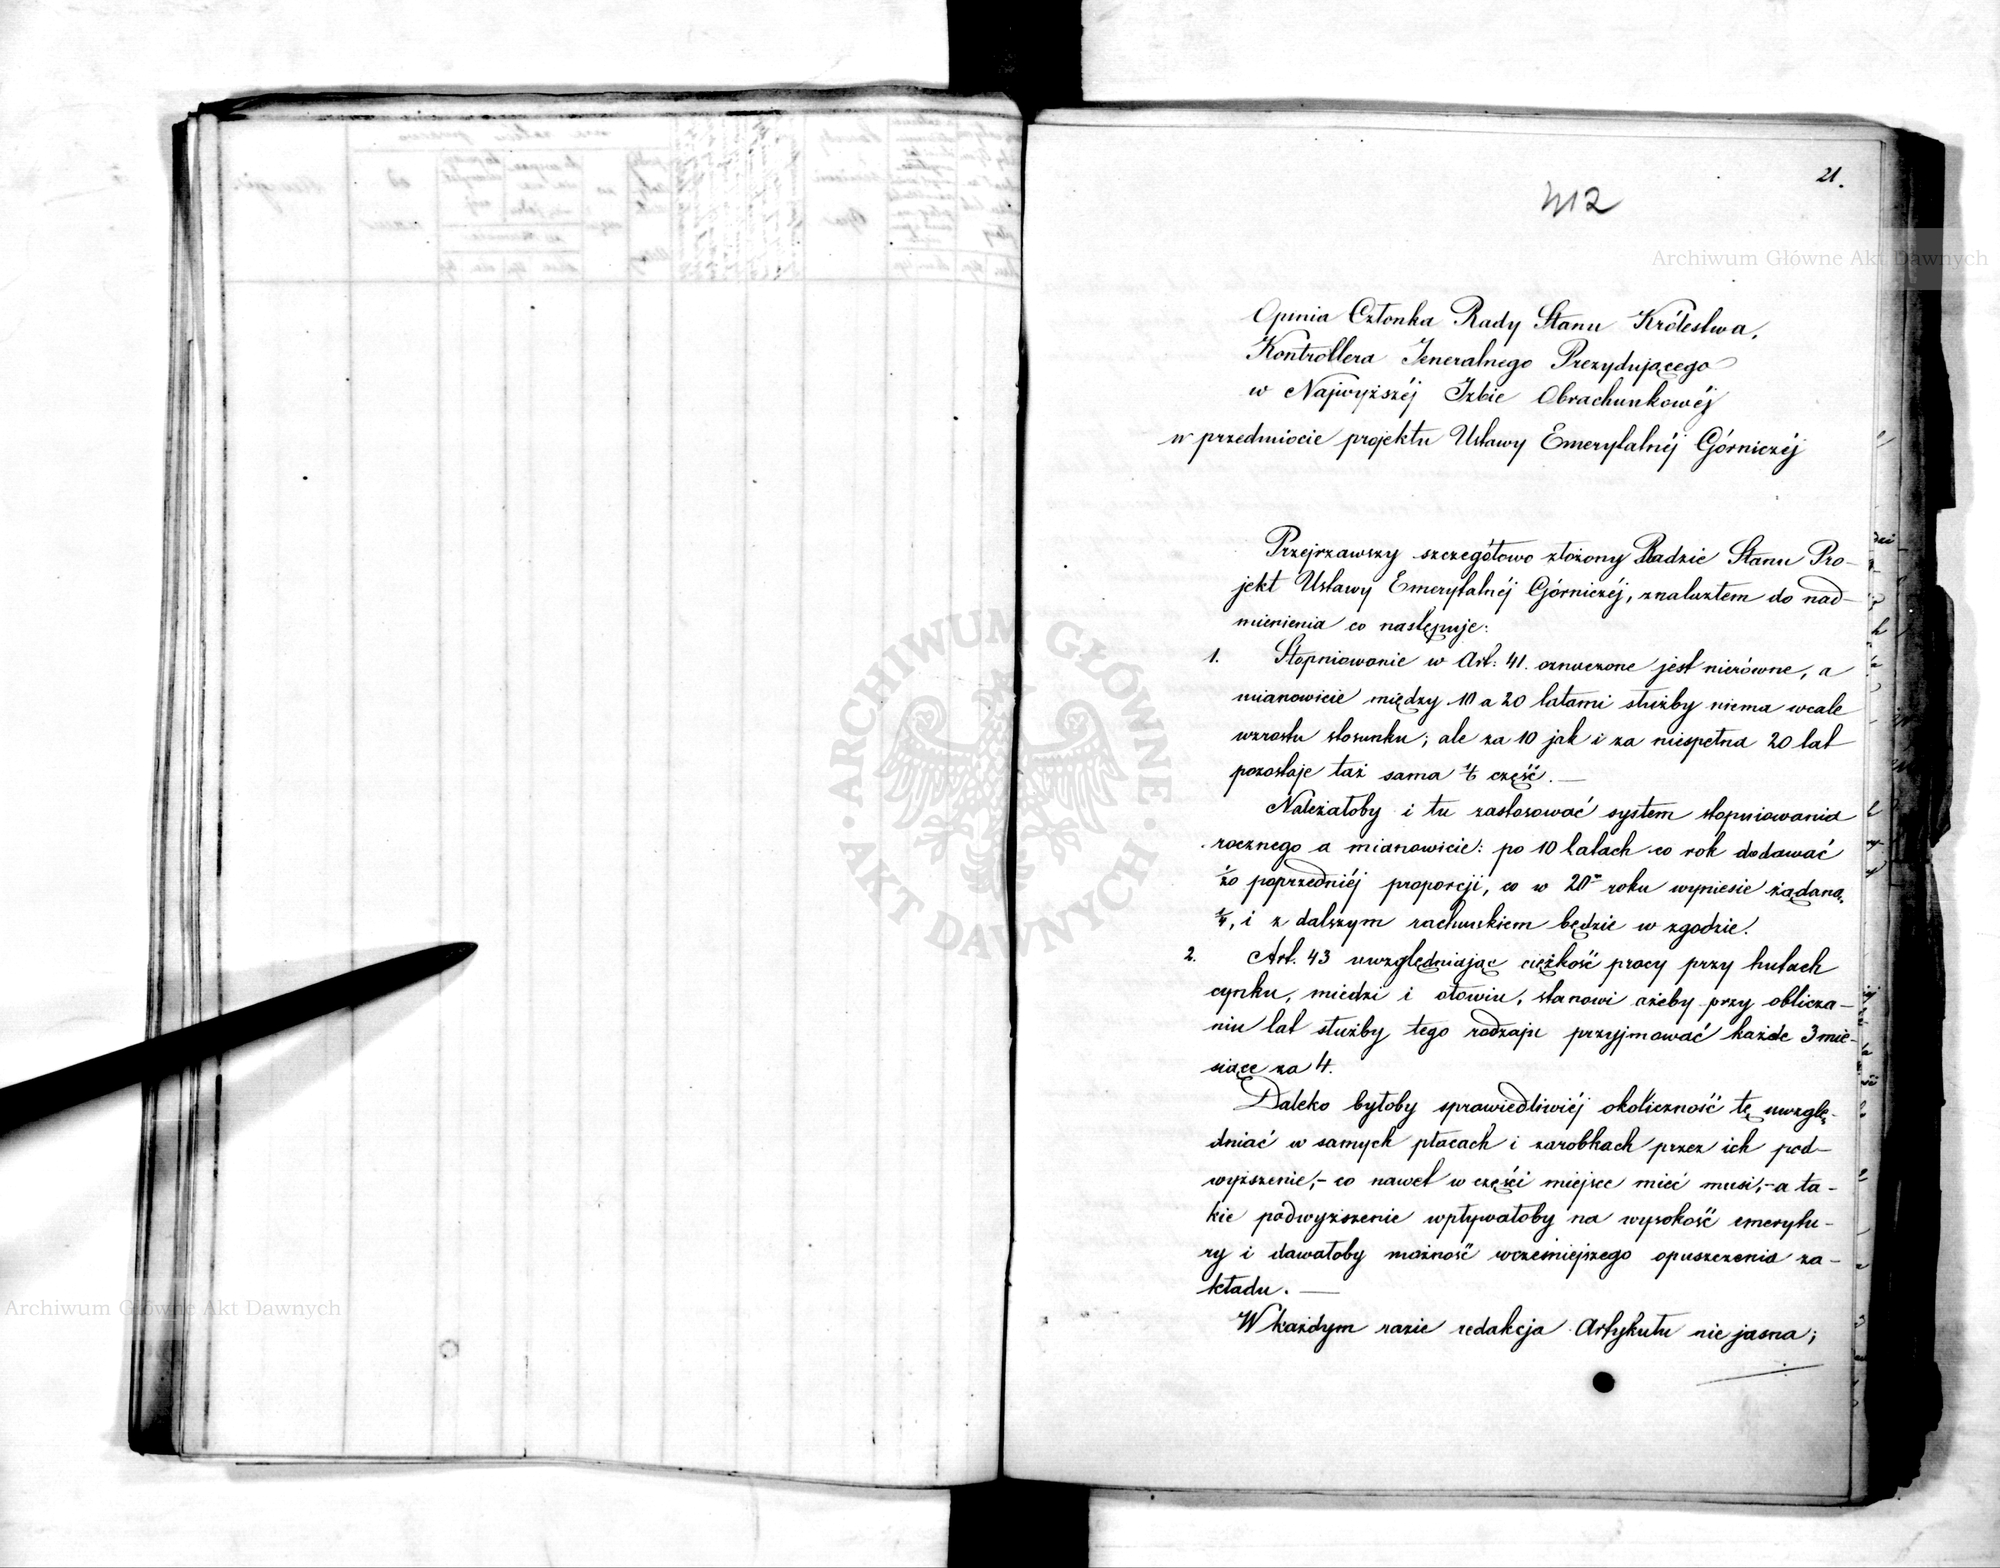 21.
412
Opinia Członka Rady Stanu Królestwa,
Kontrollera Jeneralnego Prezydującego
w Najwyższéj Izbie Obrachunkowéj
w przedmiocie projektu Ustawy Emerytalnéj Górniczéj
Przejrzawszy szczegółowo złożony Radzie Stanu Pro-
jekt Ustawy Emerytalnéj Górniczéj, znalazłem do nad-
mienienia co następuje:
1. Stopniowanie w Art: 41. oznaczone jest nierówne, a
mianowicie między 10 a 20 latami służby niema wcale
wzrostu stosunku; ale za 10 jak i za niespełna 20 lat
pozostaje taż sama część. —
Należałoby i tu zastosować system stopniowania
rocznego a mianowicie: po 10 latach co rok dodawać
poprzedniéj proporcji, co w 20m roku wyniesie żądaną
¼, i z dalszym rachunkiem będzie w zgodzie.
2. Art. 43 uwzględniając ciężkość pracy przy hutach
cynku, miedzi i ołowiu, stanowi ażeby przy oblicza-
niu lat służby tego rodzaju przyjmować każde 3 mie-
siące za 4.
Daleko byłoby sprawiedliwiéj okoliczność tę uwzglę-
dniać w samych płacach i zarobkach przez ich pod-
wyższenie,- co nawet w części miejsce mieć musi,- a ta-
kie podwyższenie wpływałoby na wysokość emerytu-
ry i dawałoby możność wcześniejszego opuszczenia za-
kładu. —
W każdym razie redakcja Artykułu nie jasna;
Archiwum Główne Akt Dawnych
ARCHIWUM GŁÓWNE · AKT DAWNYCH ·
Archiwum Główne Akt Dawnych